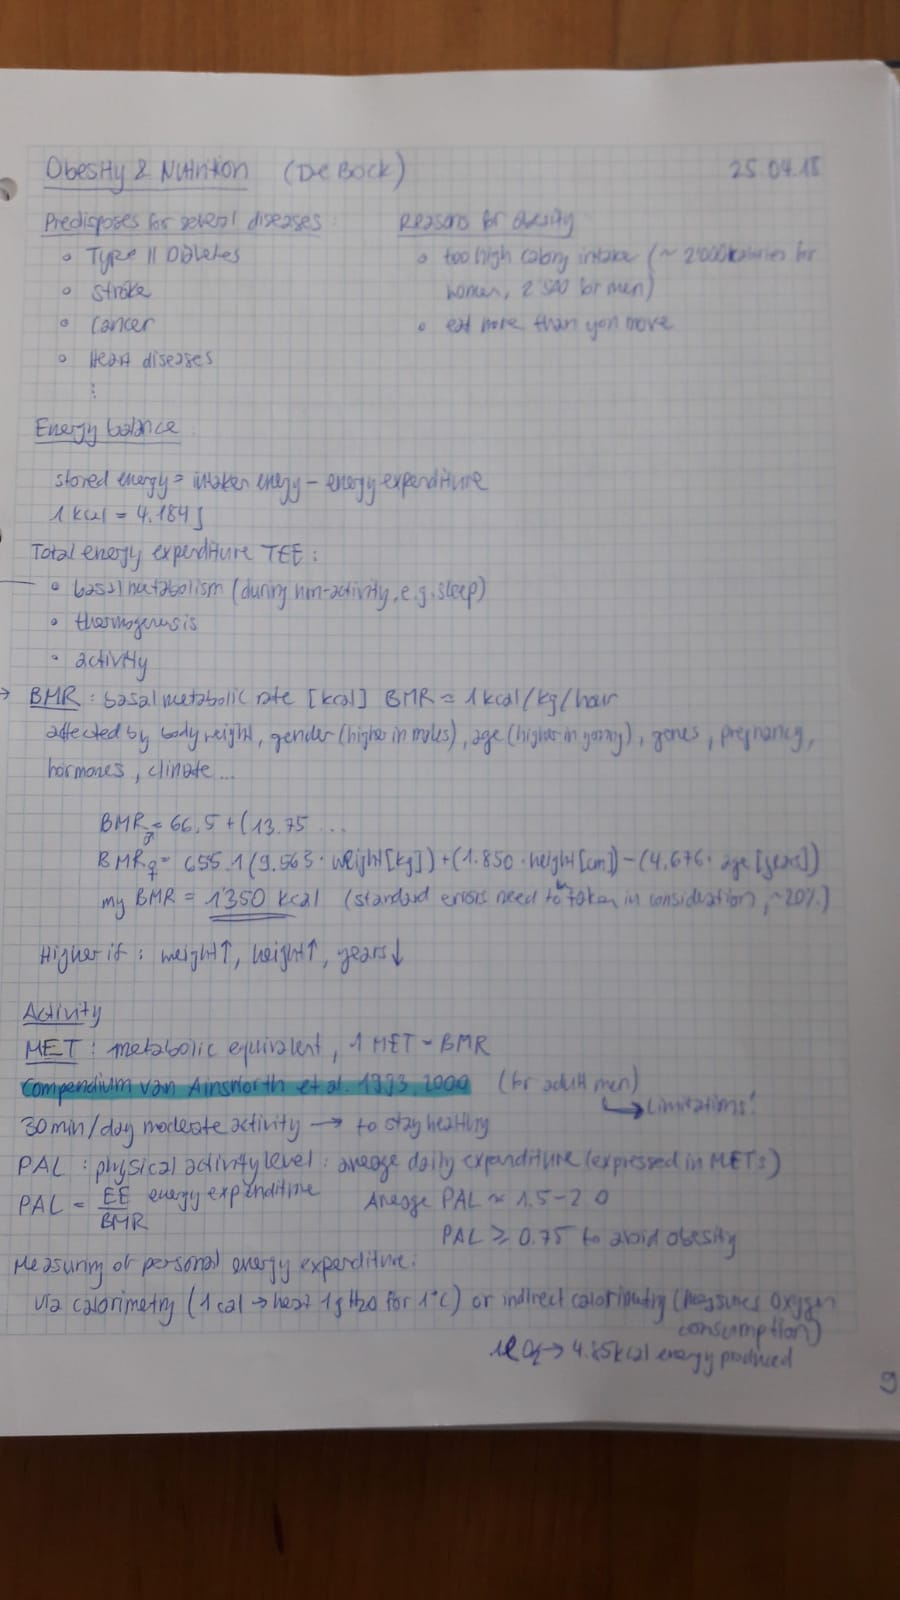 Obesity & Nutrition (De Bock) 25.04.18
Predisposes for several diseases
• Type II Diabetes
• Stroke
• Cancer
• Heart diseases
⋮
Reasons for obesity
• too high calory intake (~ 2'000 kalories for
women, 2'500 for men)
• eat more than you move
Energy balance
stored energy = intaken energy – energy expenditure
1 kcal = 4.184 J
Total energy expenditure TEE :
• basal metabolism (during non-activity, e.g. sleep)
• thermogenesis
• activity
→ BMR : basal metabolic rate [kcal] BMR = 1 kcal/kg/hour
affected by body weight, gender (higher in males), age (higher in young), genes, pregnancy,
hormones, climate ...
BMR♂ = 66.5 + (13.75 ...
BMR♀ = 655.1 (9.563 · weight [kg]) + (1.850 · height [cm]) – (4.676 · age [years])
my BMR = 1'350 kcal (standard errors need to be taken in consideration, ~20%)
Higher if : weight↑, height↑, years↓
Activity
MET : metabolic equivalent, 1 MET ~ BMR
Compendium van Ainsworth et al. 1993, 2000 (for adult men)
↳ Limitations!
30 min/day moderate activity → to stay healthy
PAL : physical activity level : average daily expenditure (expressed in METs)
PAL = EE/BMR energy expenditure Average PAL ≈ 1.5-2.0
PAL ≥ 0.75 to avoid obesity
Measuring of personal energy expenditure:
via calorimetry (1 cal → heat 1g H2O for 1°C) or indirect calorimetry (measures Oxygen
consumption)
1l O2 → 4.85 kcal energy produced
9